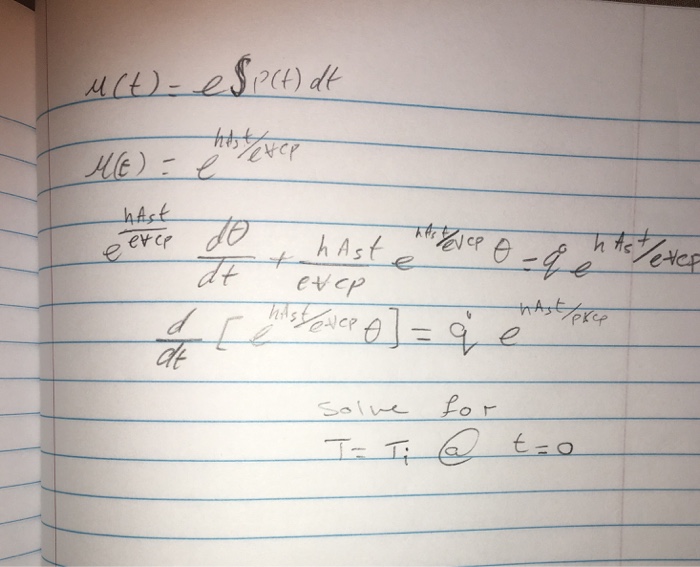 μ(t) = e∫p(t) dt
μ(t) = e^hAst/ρ∀cp
e^hAst/ρ∀cp dθ/dt + hAst/ρ∀cp e^hAst/ρ∀cp θ = q̇ e^hAst/ρ∀cp
d/dt [ e^hAst/ρ∀cp θ ] = q̇ e^hAst/ρ∀cp
Solve for
T = Ti @ t=0